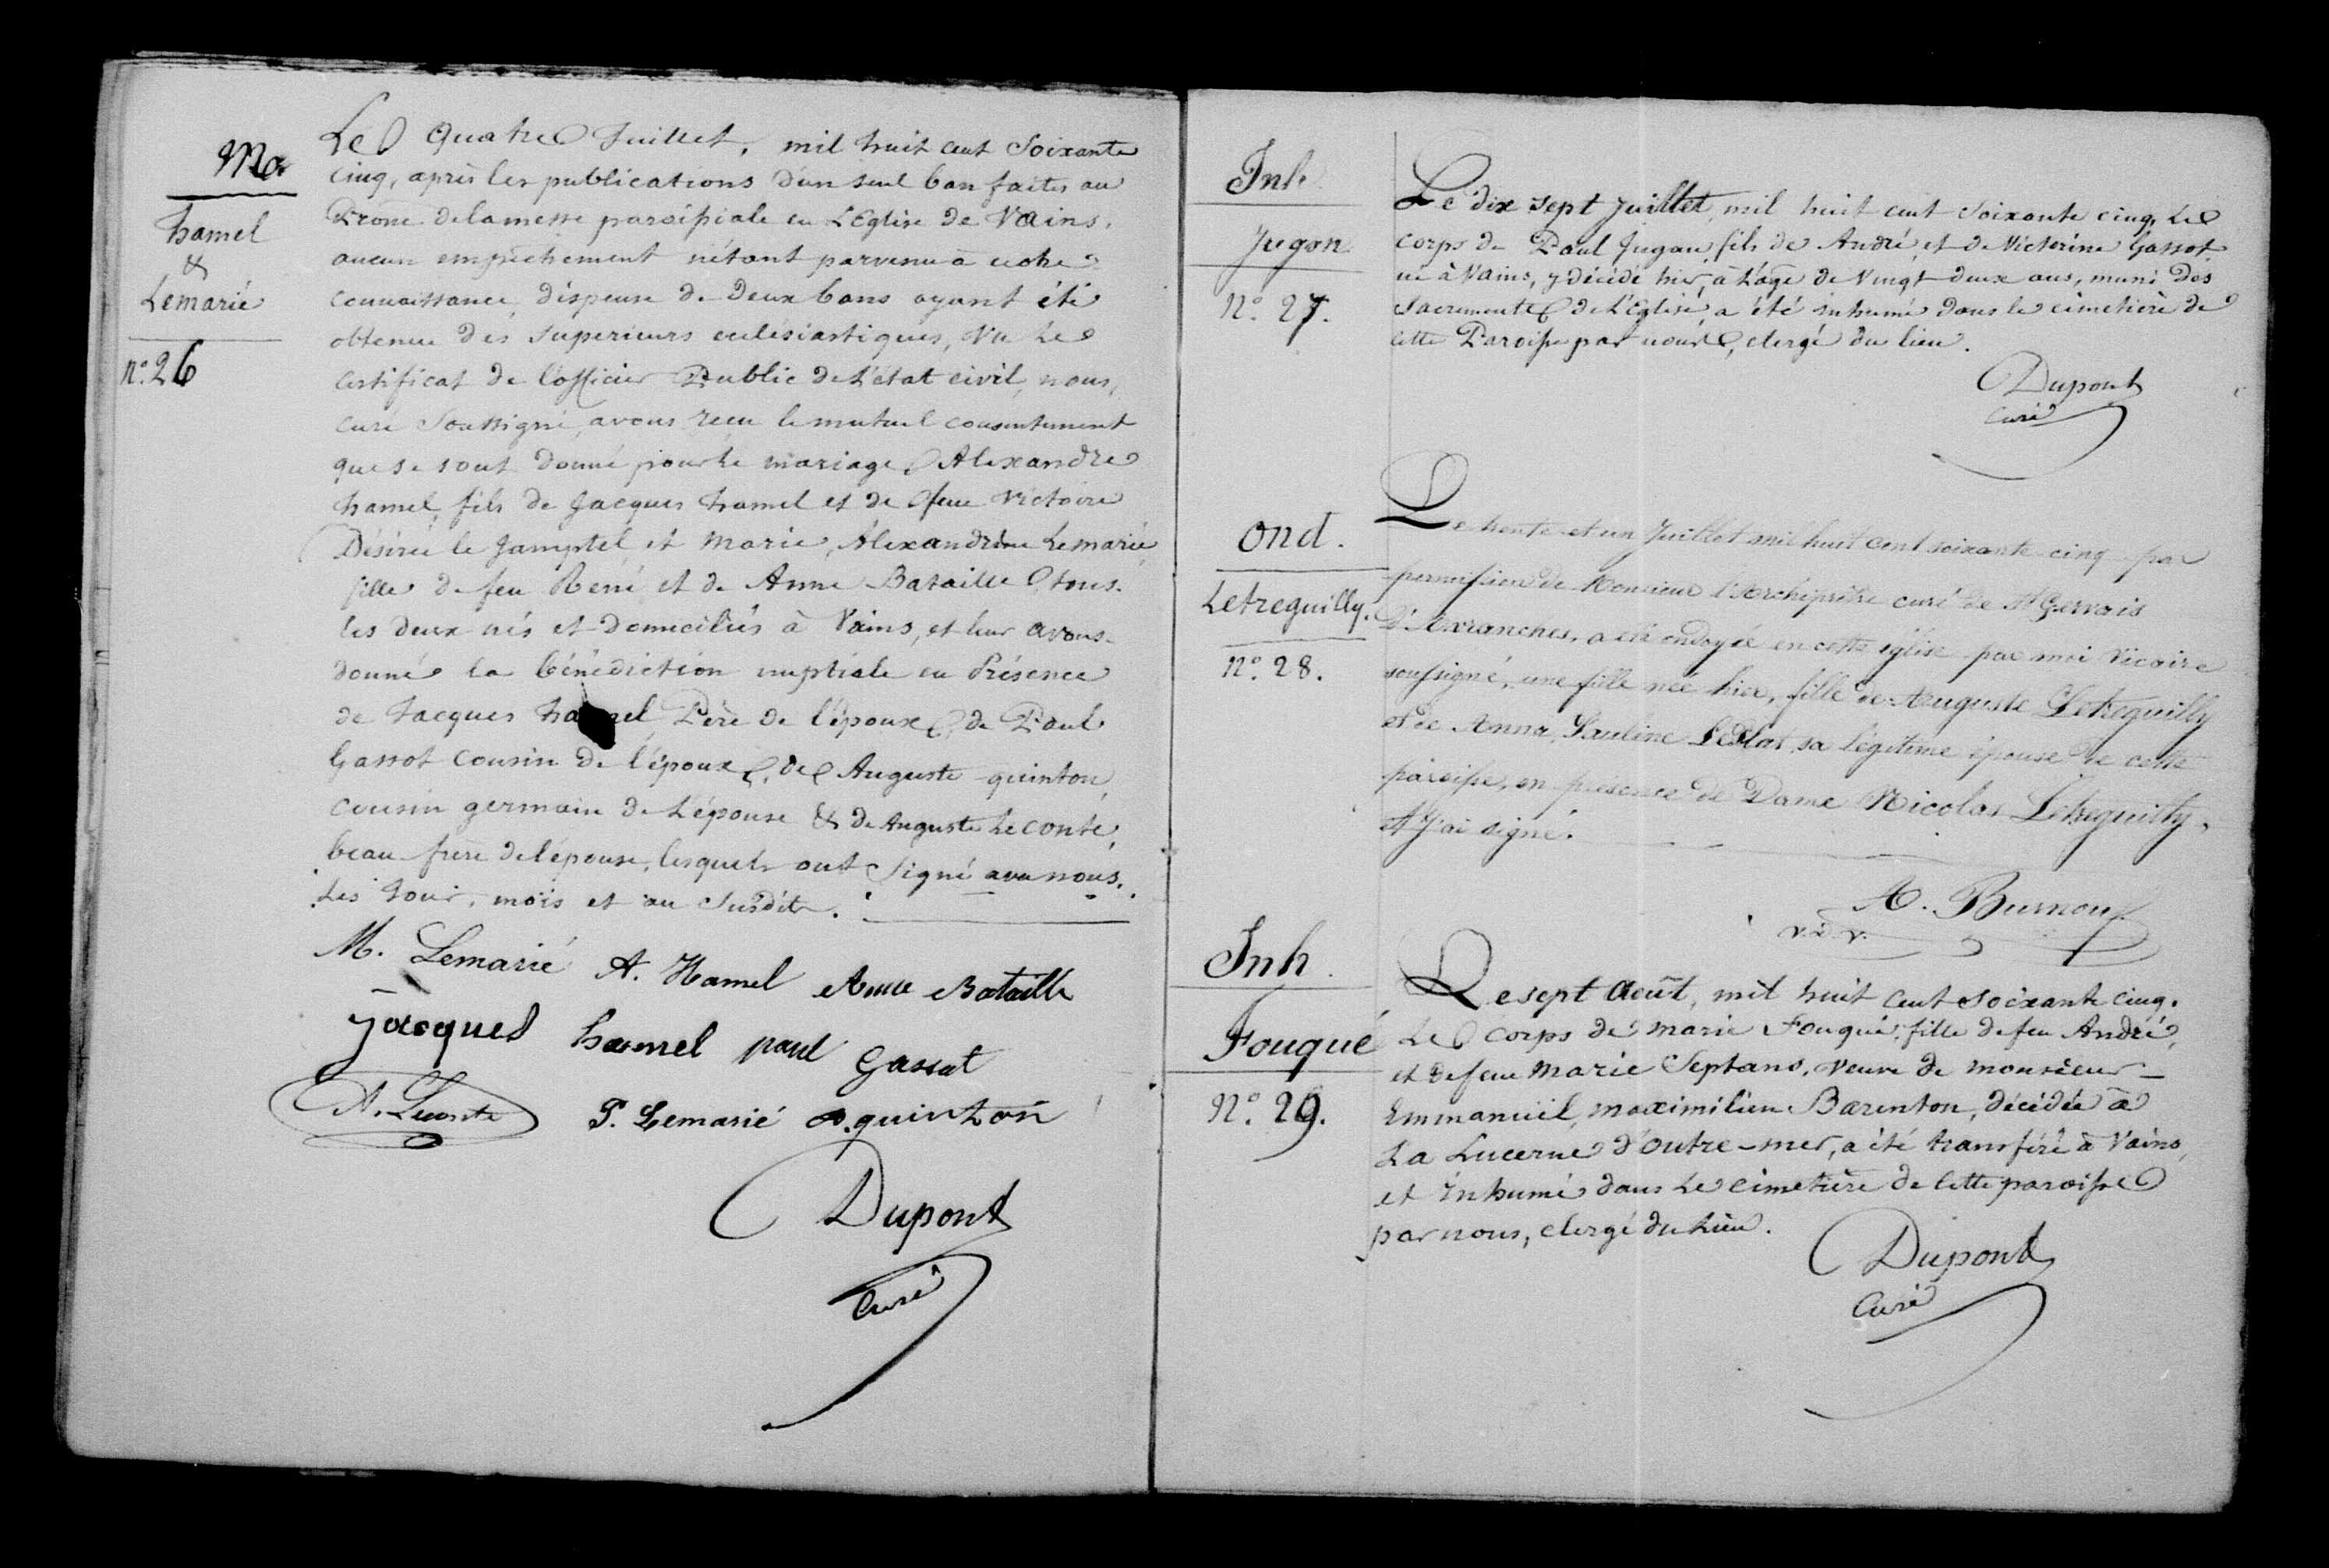 Ma.
hamel
&
Lemarié
n°. 26
Le quatre Juillet, mil huit cent Soixante
cinq, après les publications d'un seul ban faites au
Prône de la messe paroissiale en L'Eglise de Vains,
aucun empêchement n'étant parvenu à notre
connaissance, dispense de deux bans ayant été
obtenue des Superieurs ecclésiastiques, Vu Le
certificat de l'officier Public de L'état civil, nous,
curé Soussigné, avons reçu le mutuel consentement
que se sont donné pour le mariage, Alexandre
hamel, fils de Jacques hamel et de feue Victoire
Désirée le Jamptel, et Marie, Alexandrine Lemarié,
fille de feu René et de Anne Bataille, tous
les deux nés et domiciliés à Vains, et leur avons
donné la bénédiction nuptiale en Présence
de Jacques hamel, Père de l'époux, de Paul
Gassot cousin de l'époux, de Auguste quinton,
cousin germain de L'épouse & de Auguste Le conte,
beau-frere de l'épouse, lesquels ont Signé avec nous.
Les Jour, mois et an Susdits.
M. Lemarié A. Hamel Anne Bataille
Jacques hamel paul Gassot
A. Leconte P. Lemarié A. quinton
Dupont
Curé
Inh.
Jugan
N°. 27.
Le dix sept Juillet, mil huit cent soixante cinq, Le
corps de Paul Jugan, fils de André, et de Victorine Gassot,
né à Vains, y décédé hier, à L'âge de Vingt-deux ans, muni des
Sacrements de L'Eglise, a été inhumé dans le cimetière de
cette Paroisse par nous, clergé du lieu.
Dupont
Curé
Ond.
Letreguilly.
N°. 28.
Le trente et un Juillet mil huit cent soixante-cinq par
permission de Monsieur l'Archiprêtre curé de St Gervais
d'Avranches, a été ondoyée en cette église par moi Vicaire
soussigné, une fille née hier, fille de Auguste Letreguilly
et de Anna, Pauline sa légitime épouse de cette
paroisse, en présence de Dame Nicolas Letreguilly,
et J'ai signé.
A. Burnouf
v. d. v.
Inh.
Fouqué
N°. 29.
Le sept Août, mil huit cent soixante cinq.
Le corps de marie Fouqué, fille de feu André,
et de feue Marie Septans, veuve de monsieur
Emmanuël, maximilien Barenton, décédée à
La Lucerne d'Outre-mer, a été transféré à Vains,
et inhumé dans Le cimetière de cette paroisse
par nous, clergé du Lieu.
Dupont
Curé